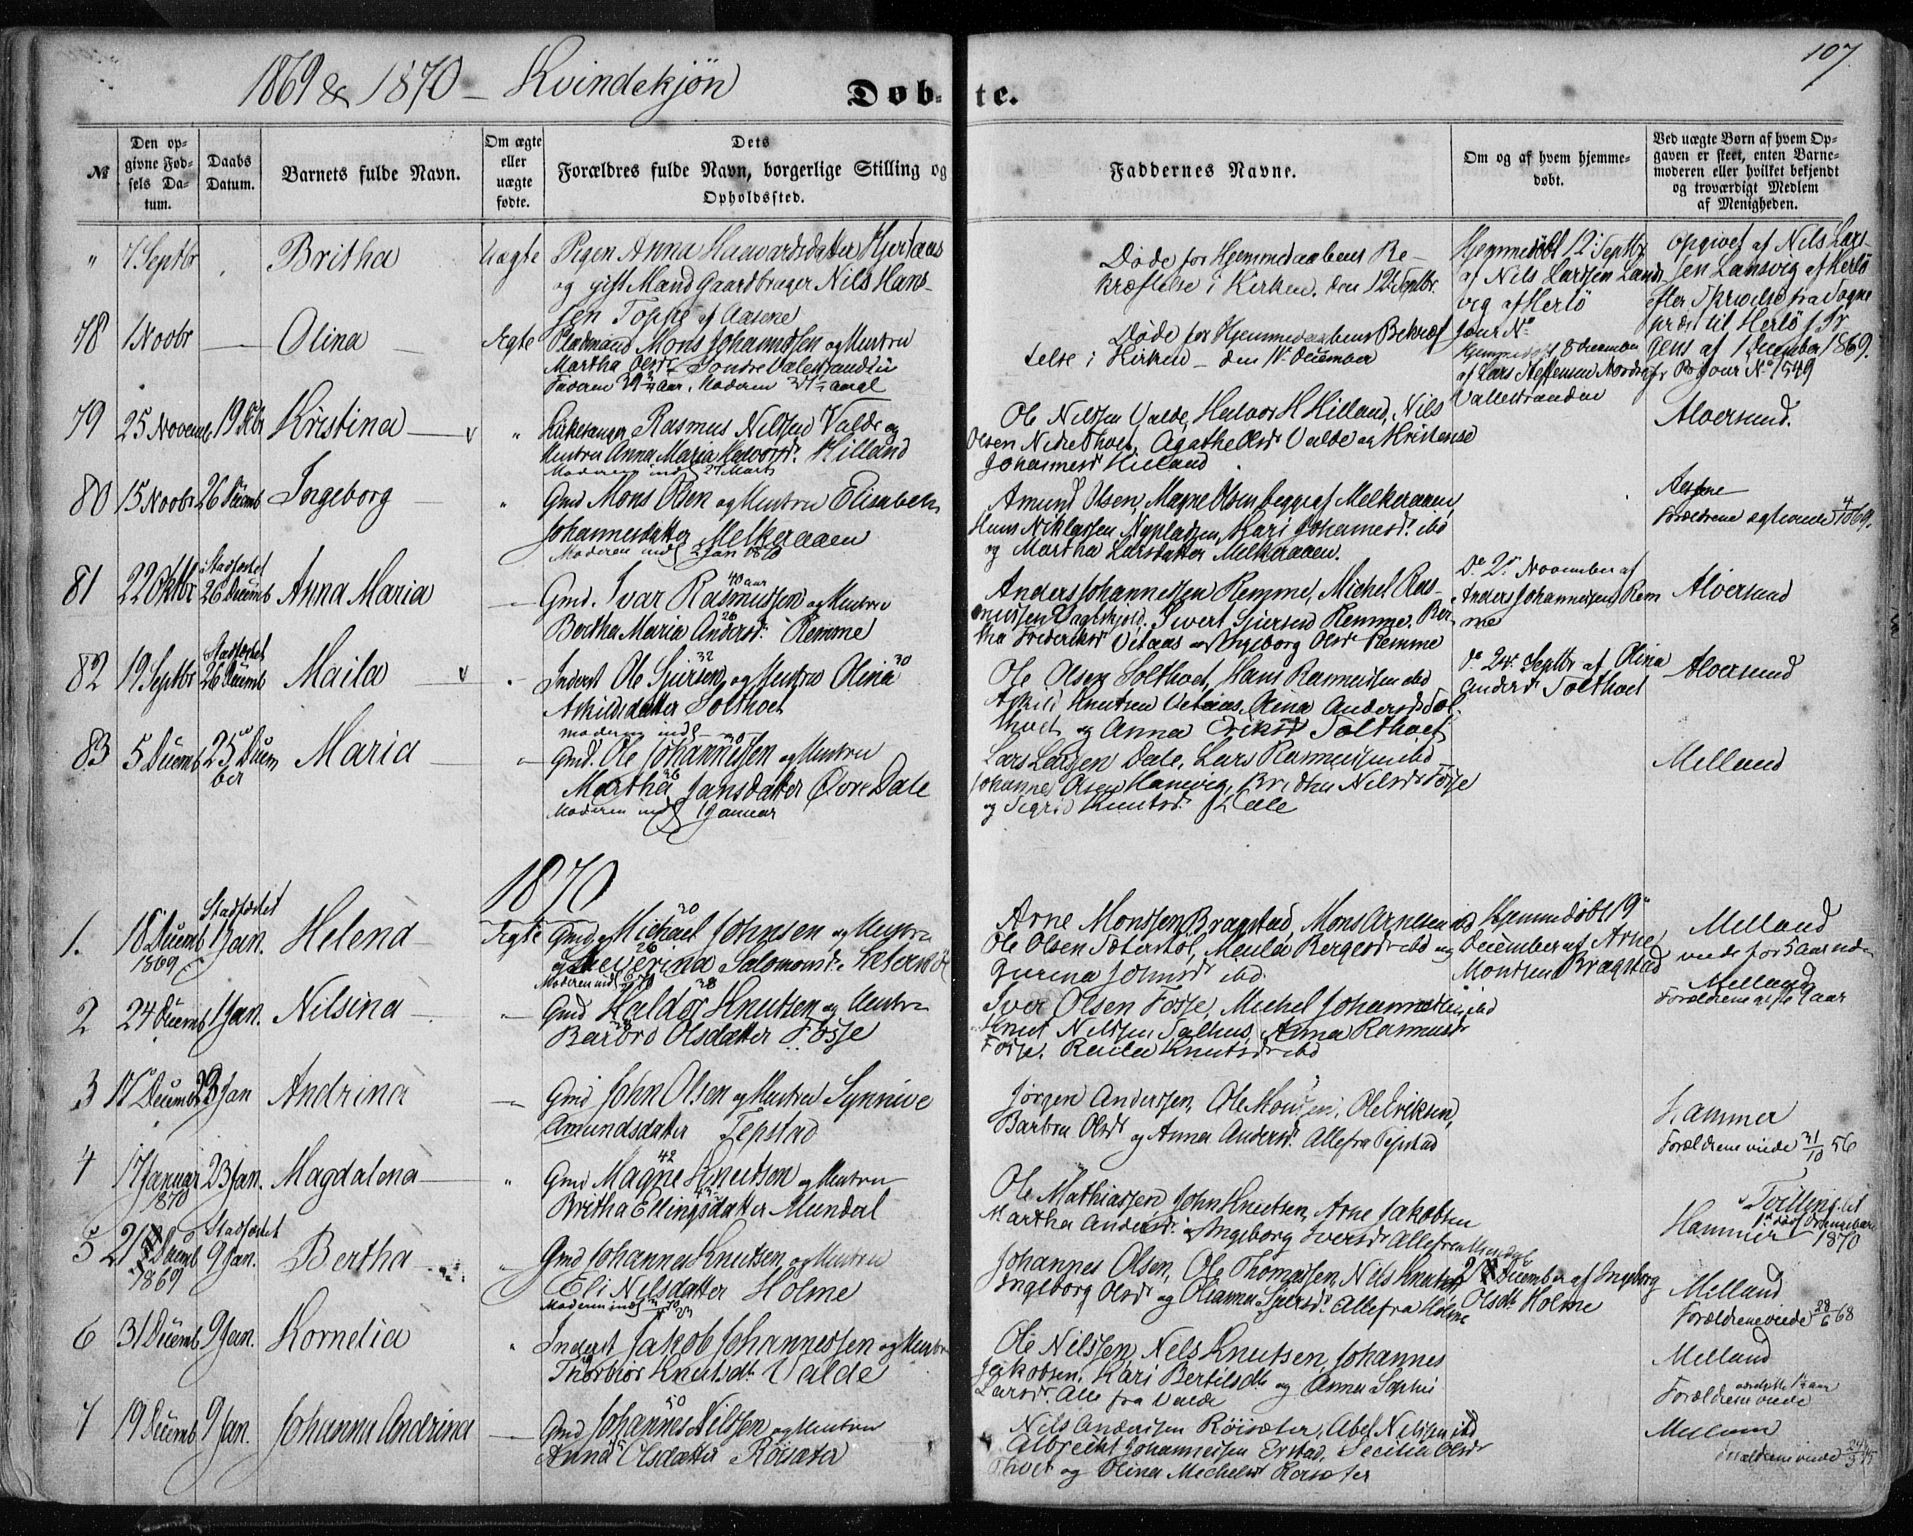 1869 & 1870 – Kvindekjön
Døb-
te.
107.
№
Den op-
givne Fød-
sels Da-
tum.
Daabs
Datum.
Barnets fulde Navn.
Om ægte
eller
uægte
fødte.
Dets
Forældres fulde Navn, borgerlige Stilling og
Opholdssted.
Faddernes Navne.
Om og af hvem hjemme-
døbt.
Ved uægte Børn af hvem Op-
gaven er skeet, enten Barne-
moderen eller hvilket bekjendt
og troværdigt Medlem
af Menigheden.
" 7 Septbr
Britha
Uægte
Pigen Anna Haavardsdatter Hjertaas
og gift Mand Gaardbruger Nils Hans-
sen Toppe af Aasene
Døde før Hjemmedaabens Be-
kræftelse i Kirken. den 12 Septbr.
Hjemmedöbt 12 Septbr
af Nils Larssen Lans-
vig af Herlö
Opgivet af Nils Lars-
sen Lansvig af Herlö
efter Skrivelse fra Sogne
præst til Herlö
gens af 1 December 1869.
Jour No 1549
78 1 Novbr
Olina
Ægte
Pladsmand Mons Johannessen og Hustru
Martha Olsdr Söndre Valestrandlii
Faderen 39½ Aar, Moderen 37½ aargl
Døde før Hjemmedaabens Bekræf
telse i Kirken – den 14 December
Hjemmedöbt 8 December
af Lars Steffensen Nordre
Vallestranden
79 25 Novemb 19 Dcbr
Kristina
"
Kirkesanger Rasmus Nilssen Valde og
Hustru Anna Maria Halvorsdr. Hilland
Moderen indl 27 Marts
Ole Nilssen Valde, Halvor H Hilland, Nils
Olsen Nedre Thvet, Agathe Olsdr Valde og Kristense
Johannesdr Hilland
Alversund.
80 15 Novbr 26 Decemb
Ingeborg
"
Gmd Mons Olsen og Hustru Elisabeth
Johannesdatter Melkeraaen
Moderen indl 2 Jan 1870
Amund Olsen, Magne Olsen, begge af Melkeraaen,
Hans Niklassen Nypladsen, Kari Johannesdr. ibd
og Martha Larsdatter Melkeraaen.
Forældrene egteviede 4/10 69.
81 22 Oktbr
Stadfæstet
26 Decemb
Anna Maria
Gmd. Ivar Rasmussen 40 aar og Hustru
Bertha Maria Andersdr. 26 Remme
Anders Johannessen Remme, Michel Ras-
mussen Vagtskjold. Sivert Sjursen Remme. Ber
tha Frederiksdr Vetaas og Ingeborg Olsdr Remme
Do 2 November af
Anders Johannessen Rem
me
Alversund
82 19 Septbr
Stadfæstet
26 Decemb
Maila
"
Inderst Ole Sjursen 32 og Hustru Olina 30
Askildsdatter Tolthvet
Moderen indl
Ole Olsen Tolthvet, Hans Rasmussen ibd
Askild Knutsen Vetaas, Olina Andersdr Tol
thvet og Anna Eriksdr Tolthvet
Do 24 Septbr af Olina
Andersdr Tolthvet
Alversund
83 5 Decemb 25 Decem
ber
Maria
"
Gmd. Ole Johannessen og Hustru
Martha 26 Jansdatter Övre Dale
Moderen indl 19 Januar
Lars Larsen Dale, Lars Rasmussen ibd
Johannes Olsen Hanevig, Britha Nilsdr Fosse
og Sigrid Knutsdr Dale
Melland
1870
1. 18 Decemb
1869
Stadfæstet
1 Jan.
Helena
Ægte
Gmd Michael 30 Johnsen og Hustru
Severina 26 Salomonsdr. Sæterstöl
Arne Monssen Bragstad, Mons Arnesen ibd
Ole Olsen Sæterstöl, Maila Bergesdr ibd og
Gurina Johnsdr ibd.
Hjemmedöbt 19
December af Arne
Monssen Bragstad
Melland
viede for 5 Aar siden
2 24 Decemb 1 Jan.
Nilsina
Gmd Haldor 38 Knutsen og Hustru
Barbro Olsdatter Fosse
Iver Olsen Fosse, Michel Johannessen ibd
Knut Nilssen Solhus, Anna Rasmusdr
Fosse. Raila Knutsdr ibd
Melland
Forældrene viede 9 aar
3 17 Decemb 23 Jan
Andrina
Gmd John Olsen og Hustru Synnive
Amundsdatter Tepstad
Jørgen Anderssen, Ole Monsen, Ole Eriksen,
Barbru Olsdr og Anna Andersdr. Alle fra Tepstad
Hammer
Forældrene viede 31/10 56
4 17 Januar
1870
23 Jan.
Magdalena
"
Gmd Magne 42 Knudson og Hustru
Britha Ellingsdatter Mundal
Ole Mathiassen, John Knutsen, Arne Jakobsen
Martha Andersdr. og Ingeborg Iversdr Alle fra Mundal
Hammer
Tvilling
1870
5 21 Decemb
1869
Stadfæstet
9 Jan.
Bertha
"
Gmd Johannes Knutsen og Hustru
Eli Nilsdatter Holme
Johannes Olsen, Ole Thomassen, Nils Knutsen
Ingeborg Olsdr og Olianna Sjursdr. Alle fra Holme
December af Ingeborg
Olsdr. Holme
Melland
Forældrene viede 28/6 68
6 31 Decemb 9 Jan.
Kornelia
"
Inderst Jakob Johannessen og Hustru
Thorbjør Knutsdr. Valde
Ole Nilssen, Nels Knutsen, Johannes
Jakobsen, Kari Bertilsdr. og Anna Sophie
Larsdr. Alle fra Valde
Melland
Forældrene viede
7 19 Decemb 9 Jan.
Johanna Andrina
Gmd Johannes 50 Nilssen og Hustru
Anna Olsdatter Röisæter
Nils Andersen Röisæter, Abel Nilssen ibd
Albrecht Johannessen Erstad, Cecilia Olsdr
Thvet og Olina Michelsdr Röisæter
Melland
Forældrene viede 24/3 45